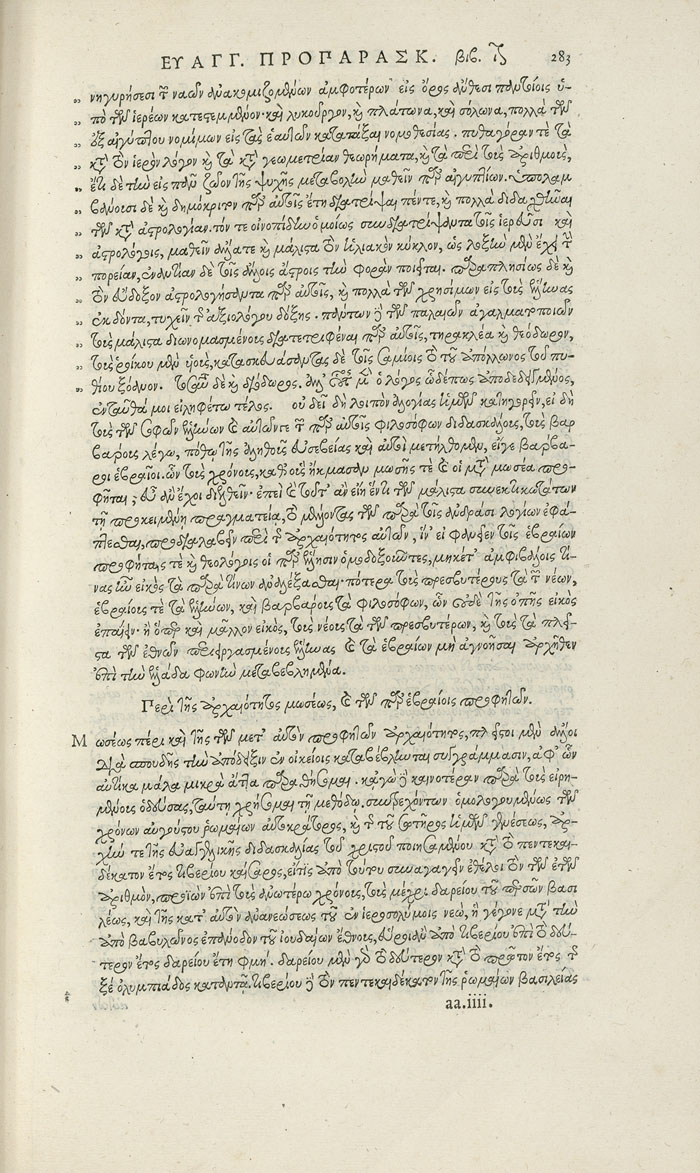 ΕΥΑΓΓ. ΠΡΟΠΑΡΑΣΚ. βιβ. ιζ 283
νηγυρήσεσι τῶν ναῶν ἀνακομιζομένων ἀμφοτέρων εἰς ὄρος ἄνθεσι παντοίοις ὑ-
πὸ τῶν ἱερέων κατεστεμμένον. καὶ λυκοῦργον, καὶ πλάτωνα, καὶ σόλωνα, πολλὰ τῶν
ἐξ αἰγύπτου νομίμων εἰς τὰς ἑαυτῶν κατατάξαι νομοθεσίας. πυθαγόραν τε τὰ
κατὰ τὸν ἱερὸν λόγον καὶ τὰ κατὰ γεωμετρίαν θεωρήματα, καὶ τὰ περὶ τοὺς ἀριθμοὺς,
ἔτι δὲ τὴν εἰς πᾶν ζῶον τῆς ψυχῆς μεταβολὴν μαθεῖν παρ' αἰγυπτίων. ὑπολαμ
βάνουσι δὲ καὶ δημόκριτον παρ' αὐτοῖς ἔτη διατρίψαι πέντε, καὶ πολλὰ διδαχθῆναι
τῶν κατὰ ἀστρολογίαν. τόν τε οἰνοπίδην ὁμοίως συνδιατρίψαντα τοῖς ἱερεῦσι καὶ
ἀστρολόγοις, μαθεῖν ἄλλα τε καὶ μάλιστα τὸν ἡλιακὸν κύκλον, ὡς λοξὴν μὲν ἔχει τὴν
πορείαν, ἐναντίαν δὲ τοῖς ἄλλοις ἄστροις τὴν φορὰν ποιεῖται. παραπλησίως δὲ καὶ
τὸν εὔδοξον ἀστρολογήσαντα παρ' αὐτοῖς, καὶ πολλὰ τῶν χρησίμων εἰς τοὺς ἕλληνας
ἐκδόντα, τυχεῖν τῆς ἀξιολόγου δόξης. πάντων δὲ τῶν παλαιῶν ἀγαλματοποιῶν
τοὺς μάλιστα διωνομασμένους διατετριφέναι παρ' αὐτοῖς, τηρακλέα καὶ θεόδωρον,
τοὺς ῥοίκου μὲν υἱοὺς, κατασκευάσαντας δὲ τοῖς σαμίοις τὸ τοῦ ἀπόλλωνος τοῦ πυ-
θίου ξόανον. ταῦτα δὲ καὶ διόδωρος. ἀλλ' οὗτος μὲν ὁ λόγος ὧδέ πως ἀποδεδειγμένος,
ἐνταῦθά μοι εἰληφέτω τέλος. οὐ δεῖ δὴ λοιπὸν ἀλογίας ἡμῶν κατηγορεῖν, εἰ δὴ
τοὺς τῶν σοφῶν ἑλλήνων καὶ αὐτῶν τε τῶν παρ' αὐτοῖς φιλοσόφων διδασκάλους, τοὺς βαρ
βάρους λέγω, πόθῳ τῆς ἀληθοῦς εὐσεβείας καὶ αὐτοὶ μετήλθομεν, εἴγε βάρβα-
ροι ἑβραῖοι. ὧν τοὺς χρόνους, καθ' οὓς ἤκμασαν μωσῆς τε καὶ οἱ μετὰ μωσέα προ-
φῆται, εὖ ἂν ἔχοι διελθεῖν. ἐπεὶ καὶ τοῦτ' ἂν εἴη ἕν τι τῶν μάλιστα συνεκτικωτάτων
τῇ προκειμένῃ πραγματείᾳ, τὸ μέλλοντας τῶν παρὰ τοῖς ἀνδράσι λογίων ἐφά-
πτεσθαι, προδιαλαβεῖν περὶ τῆς ἀρχαιότητος αὐτῶν, ἵν' εἰ φανεῖεν τοῖς ἑβραίων
προφήταις τε καὶ θεολόγοις οἱ παρ' ἕλλησιν ὁμοδοξοῦντες, μηκέτ' ἀμφιβάλοις τί-
νας ἦν εἰκὸς τὰ παρὰ τίνων ἀναλέξασθαι. πότερα τοὺς πρεσβυτέρους τὰ τῶν νέων,
ἑβραίους τε τὰ ἑλλήνων, καὶ βαρβάρους τὰ φιλοσόφων, ὧν οὐδὲ τῆς ὀπῆς εἰκὸς
ἐπαΐειν. ἢ ὅπερ καὶ μᾶλλον εἰκὸς, τοὺς νέους τὰ τῶν πρεσβυτέρων, καὶ τοὺς τὰ πλεῖ-
στα τῶν ἐθνῶν περιειργασμένους ἕλληνας καὶ τὰ ἑβραίων μὴ ἀγνοῆσαι ἀρχῆθεν
ἐπὶ τὴν ἑλλάδα φωνὴν μεταβεβλημένα.
Περὶ τῆς ἀρχαιότητος μωσέως, καὶ τῶν παρ' ἑβραίοις προφητῶν.
Μωσέως πέρι καὶ τῆς τῶν μετ' αὐτὸν προφητῶν ἀρχαιότητος, πλεῖστοι μὲν ἄλλοι
διὰ σπουδῆς τὴν ἀπόδειξιν ἐν οἰκείοις καταβέβληνται συγγράμμασιν, ἀφ' ὧν
αὐτίκα μάλα μικρὰ ἄττα παραθήσομαι. κἀγὼ δὲ καινοτέραν παρὰ τοὺς εἰρη-
μένους ὁδεύσας, ταύτῃ χρήσομαι τῇ μεθόδῳ. συντρεχόντων ὁμολογουμένως τῶν
χρόνων αὐγούστου ῥωμαίων αὐτοκράτορος, καὶ τῆς τοῦ σωτῆρος ἡμῶν γενέσεως, ἀρ-
χήν τε τῆς εὐαγγελικῆς διδασκαλίας τοῦ χριστοῦ ποιησαμένου κατὰ τὸ πεντεκαι-
δέκατον ἔτος τιβερίου καίσαρος, εἴ τις ἀπὸ τούτου συναγαγεῖν ἐθέλοι τὸν τῶν ἐτῶν
ἀριθμὸν, προϊὼν ἐπὶ τοὺς ἀνωτέρω χρόνους, τοὺς μέχρι δαρείου τοῦ περσῶν βασι
λέως, καὶ τῆς κατ' αὐτὸν ἀνανεώσεως τοῦ ἐν ἱεροσολύμοις νεὼ, ἣ γέγονε μετὰ τὴν
ἀπὸ βαβυλῶνος ἐπάνοδον τοῦ ἰουδαίων ἔθνους, εὕροι ἂν ἀπὸ τιβερίου ἐπὶ τὸ δεύ-
τερον ἔτος δαρείου ἔτη φμή. δαρείου μὲν γὰρ τὸ δεύτερον κατὰ τὸ πρῶτον ἔτος τῆς
ξε ὀλυμπιάδος καταντᾷ. τιβερίου δὲ τὸν πεντεκαιδέκατον τῆς ῥωμαίων βασιλείας
aa.iiii.